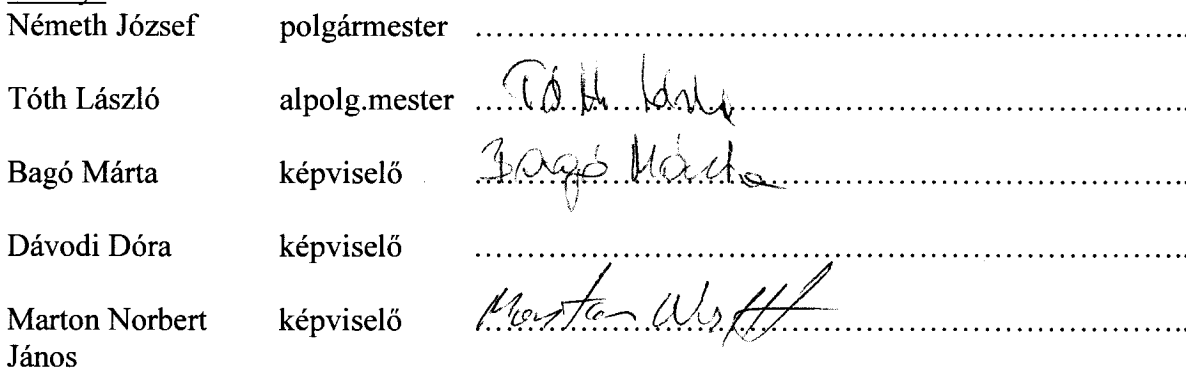 Németh József polgármester ........................................................................
Tóth László alpolg.mester ....Tóth László........................................................
Bagó Márta képviselő ....Bagó Márta........................................................
Dávodi Dóra képviselő ........................................................................
Marton Norbert képviselő ....Marton........................................................
János